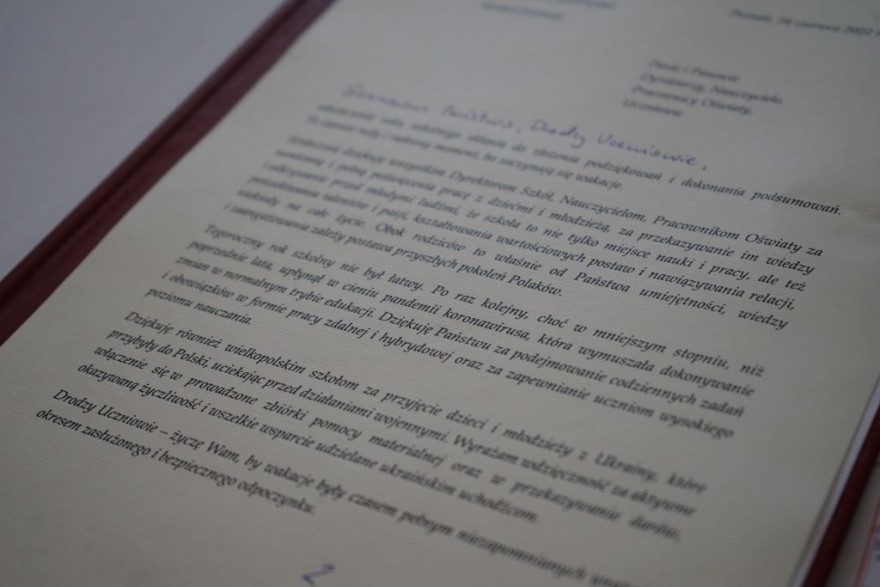 Poznań, 24 czerwca 2022 r.
Panie i Panowie
Dyrektorzy, Nauczyciele,
Pracownicy Oświaty,
Uczniowie
Szanowni Państwo, Drodzy Uczniowie,
zakończenie roku szkolnego skłania do złożenia podziękowań i dokonania podsumowań.
To zawsze miły i radosny moment, bo zaczynają się wakacje.
Serdecznie dziękuję wszystkim Dyrektorom Szkół, Nauczycielom, Pracownikom Oświaty za
sumienną i pełną poświęcenia pracę z dziećmi i młodzieżą, za przekazywanie im wiedzy
i odkrywanie przed młodymi ludźmi, że szkoła to nie tylko miejsce nauki i pracy, ale też
poszukiwania talentów i pasji, kształtowania wartościowych postaw i nawiązywania relacji,
niekiedy na całe życie. Obok rodziców to właśnie od Państwa umiejętności, wiedzy
i zaangażowania zależy postawa przyszłych pokoleń Polaków.
Tegoroczny rok szkolny nie był łatwy. Po raz kolejny, choć w mniejszym stopniu, niż
poprzednie lata, upłynął w cieniu pandemii koronawirusa, która wymuszała dokonywanie
zmian w normalnym trybie edukacji. Dziękuję Państwu za podejmowanie codziennych zadań
i obowiązków w formie pracy zdalnej i hybrydowej oraz za zapewnianie uczniom wysokiego
poziomu nauczania.
Dziękuję również wielkopolskim szkołom za przyjęcie dzieci i młodzieży z Ukrainy, które
przybyły do Polski, uciekając przed działaniami wojennymi. Wyrażam wdzięczność za aktywne
włączenie się w prowadzone zbiórki pomocy materialnej oraz w przekazywanie darów,
okazywaną życzliwość i wszelkie wsparcie udzielane ukraińskim uchodźcom.
Drodzy Uczniowie – życzę Wam, by wakacje były czasem pełnym niezapomnianych wrażeń,
okresem zasłużonego i bezpiecznego odpoczynku.